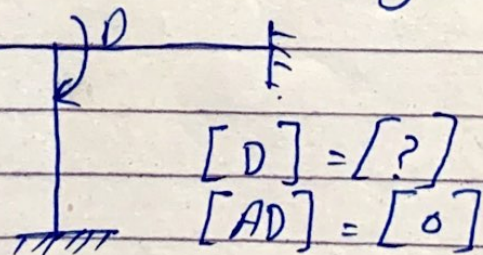 D
[D] = [?]
[AD] = [0]